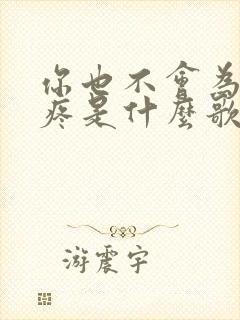 你也不會為
疼是什麼歌
游震宇